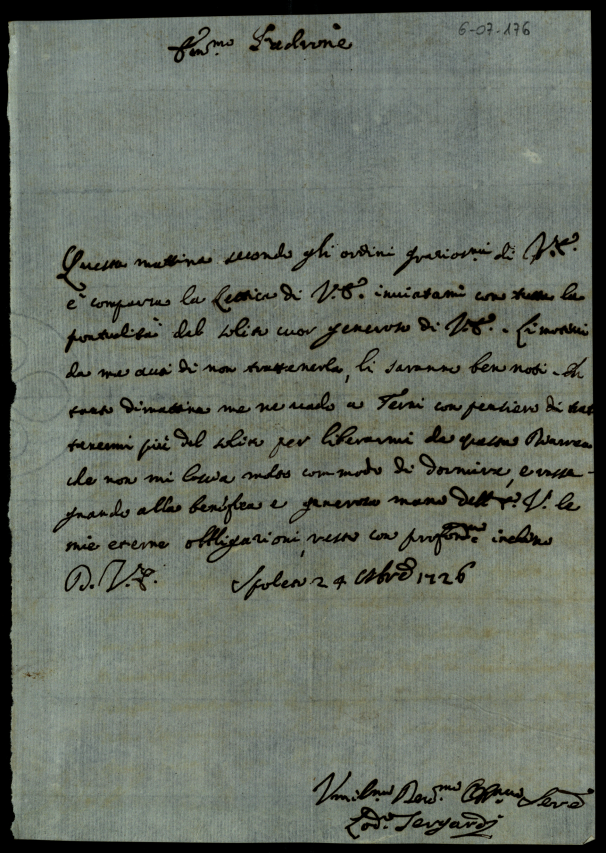 6-07-176
Em.mo Padrone
Questa mattina secondo gli ordini graziosmi di V.E.
è comparsa la Lettica di V.E. inviatami con tutta la
pontualità del solito cuor generoso di V.E. Li motivi
da me avuti di non trattenerla, li saranno ben noti. In
tanto dimattina me ne vado a Terni con pensiero di trat
tenermi più del solito per liberarmi da questa
che non mi lascia molto commodo di dormire, e
gnando alla benefica e generosa mano dell' E. V. le
mie eterne obbligazioni, resto con profond.ma inchino
D. V. E. Spoleto 24 Obre 1726
Umil.mo Dev.mo Obb.mo Serv.e
Lod.o Sergardi